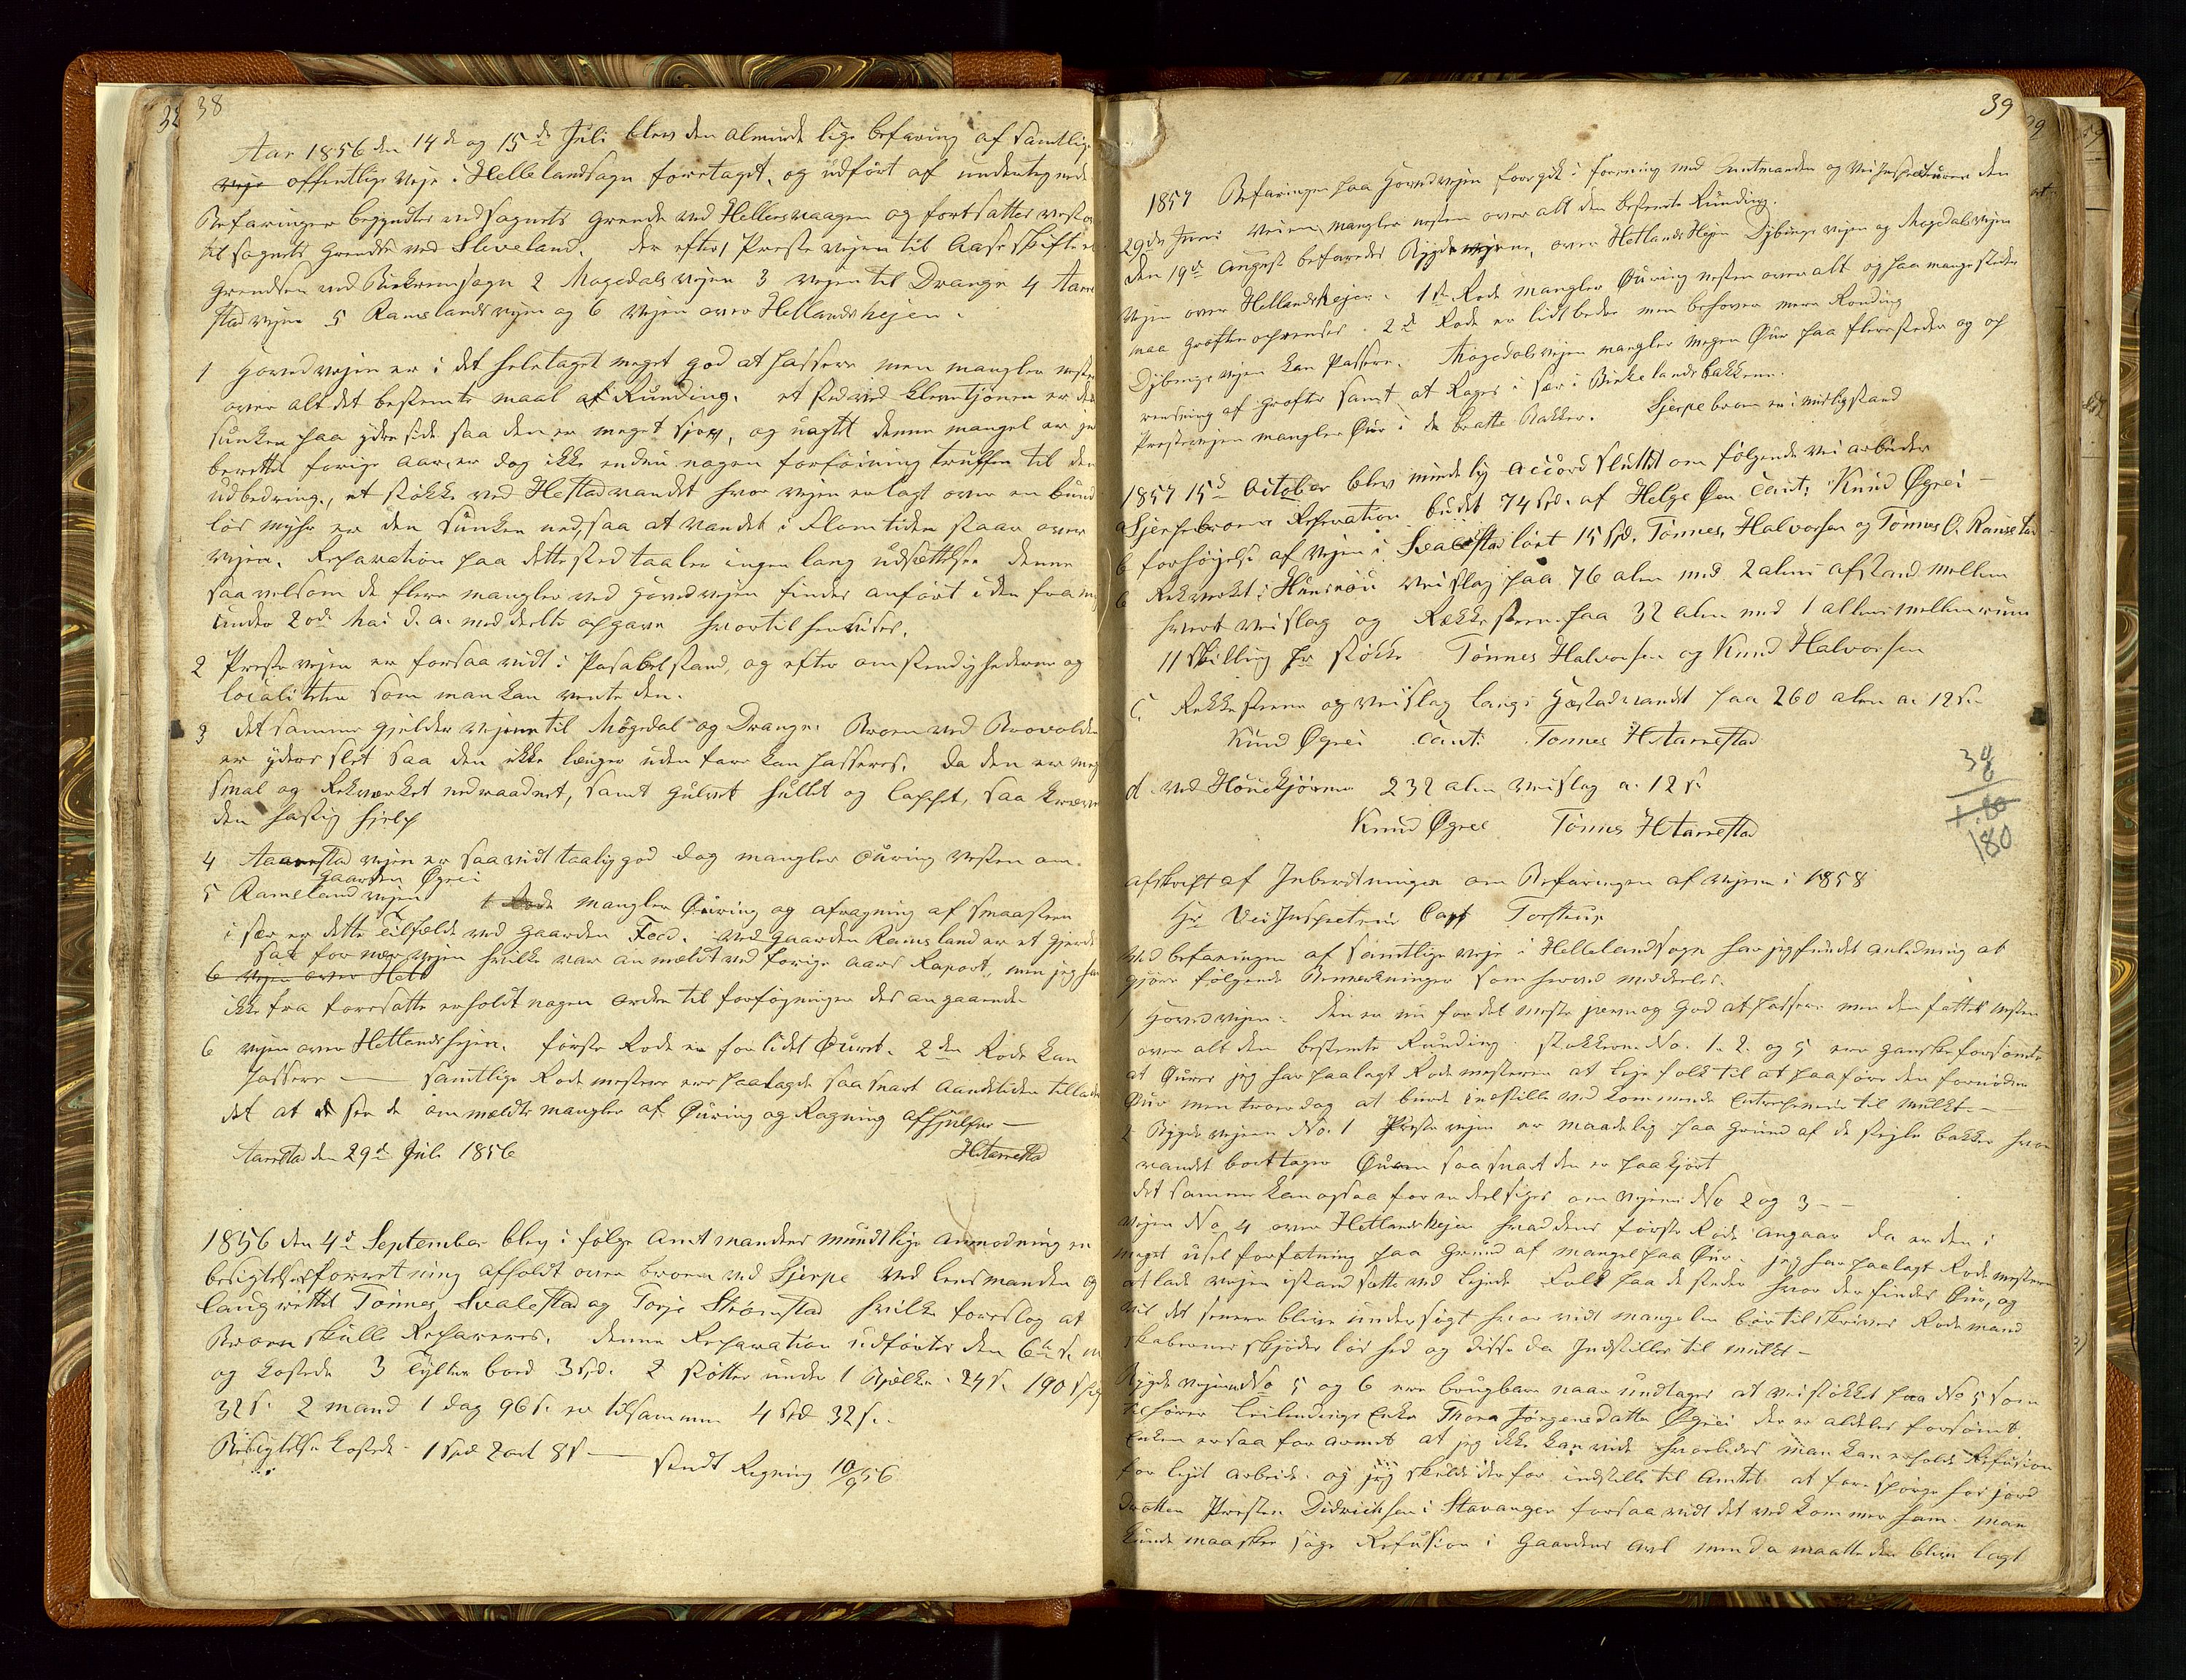 38
Aar 1856 den 14de og 15de Juli blev den almindelige befaring af samtlige
veje offentlige Veje i Hellelandsogn foretaget, og udført af undertegnede
Befaringen begyndtes ved sognets Grendse ved Hellersvaagen og fortsattes vestover
til sognets Grendse ved Sleveland. der efter 1 Præstevejen til Aase skiftet
Grendsen ved Birkremsogn 2 Møgedalsvejen 3 Vejen til Drange 4 Aarre
stadvejen 5 Ramslandsvejen og 6 Vejen over Hellandshejen.
1 Hovedvejen er i det heletaget meget god at passere men mangler nesten
over alt det bestemte maal af Runding. et sted ved Klemtjønen er den
sunken paa ydre side saa den er meget sjæv, og uagtet denne mangel er
berettet forige aar, er dog ikke endnu nogen forføining truffen til den
udbedring., et støkke ved Hestadvandet hvor vejen er lagt over en bund
løs myhr er den sunken ned, saa at vandet i Flomtiden staar over
vejen. Reparation paa dette sted taaler ingen lang udsættelse denne
saavelsom de flere mangler ved Hovedvejen findes anført i den fra mig
under 20de Mai d. a. meddelte opgave hvortil henvises.
2 Præstevejen er forsaavidt i Pasabel stand, og efter omstendighederne og
localiteten som man kan vente den.
3 det samme gjelder vejene til Møgedal og Drange. Broen ved Brovolden
er yders slet saa den ikke længer uden fare kan passeres, da den er meget
smal og Rekværket nedraadnet, samt Gulvet hullet og lappet, saa kræver
den hastig hjelp
4 Aarrestad vejen er saavidt taalig god dog mangler Øuring Vesten om
Gaarden Øgrei
5 Ramsland vejen 1 Rode mangler Øuring og afragning af smaasteen
i sær er dette Tilfælde ved Gaarden Feed. ved Gaarden Ramsland er et Gjerde
sat for nær vejen hvilke var anmældt ved forige aars Raport, men jeg har
6 Vejen over Hetl
ikke fra foresatte erholdt nogen Orden til forføyninger des angaaende
6 Vejen over Hetlandshejen. første Rode er for lidet Øuret. 2den Rode kan
passere — samtlige Rodemestere ere paalagde saasnart Aandetiden tillader
det at se de ommældte mangler af Øuring og Ragning afhjulpne —
Aarrestad den 29de Juli 1856 HAarrestad
1856 den 4de September blev i følge Amtmandens mundtlige Anmodning en
besigtelsesforretning afholdt over broen ved Sjerpe ved Lensmanden og
laugrettet Tønnes Svalestad og Torje Strømstad hvilke foreslog at
Broen skulle Repareres. denne Reparation udførtes den 6te s. m.
og kostede 3 Tylter bord 3 Spd. 2 støtter under 1 Bjelke 24 s. 190 spiger
32 s. 2 mand 1 dag 96 s. er tilsammen 4 Spd 32 s..
Besigtelsen kostede 1 Spd 2 ort 8 s — sendt Regning 10/9 56
39
1857 Befaringen paa Hovedvejen foregik i forening med Amtmanden og Vei Inspecteuren den
29de Juni veien mangler nesten over alt den bestemte Runding.
den 19de August befaredes Bygdevejene, over Hetlands Hejen Dybings vejen og Møgedalsvejen
Vejen over Hellandshejen. 1ste Rode mangler Øuring nesten over alt og paa mange steder
maa Grøften oprenses. 2de Rode er lidt bedre men behøver mere Rending
Dybings vejen kan Passere. Møgedalsvejen mangler megen Øur paa flere steder og op
rensning af Grøfter samt at Rages i sær i Birkelandsbakkene.
Præstevejen mangler Øur i de bratte Bakker. Sjerpebroen er i mislig stand
1857 15de October blev mindelig Accord sluttet om følgende vei arbeider
a Sjerpebroens Reparation budet 74 Spd. af Helge Øen Caut: Knud Øgrei —
b forhøyelse af vejen i Svalestad lønt 15 Spd. Tønnes Halvorsen og Tønnes O. Ramsla
6 Rekværk i Hunsnøii Veislag paa 76 alen med 2 alens afstand mellem
hvert Veislag og Rækkesteen paa 32 alen med 1 allens mellemrum
11 Skilling pr støkke Tønnes Halvorsen og Knud Halvorsen
C. Rekkesteene og Veislag langs Hæstadvandet paa 260 alen a. 12 s.
Knud Øgrei Caut: Tønnes HAarrestad
d. ved Hønetjørnen 232 alen Veislag a. 12 s.
Knud Øgrei Tønnes HAarrestad
38
180
afskrift af Inberetningen om Befaringen af vejene i 1858
Hr Vei Inspecteur Capt Torstrup
Ved befaringen af samtlige veje i Hellelandsogn har jeg fundet anledning at
gjøre følgende Bemerkninger som herved meddeles.
1 Hovedvejen: den er nu for det meste jævn og God at passere men den fattes nesten
over alt den bestemte Runding. støkkerne No. 1. 2. og 5 ere ganske forsømte
at Øures jeg har paalagt Rodemesteren at leje folk til at paaføre den fornødne
Øur men troer dog at burde indstille vedkommende Entrepreneur til Mulkt. —
2 Bygdevejene No. 1 Præstevejen er maadelig paa Grund af de stejle bakker hvor
vandet borttager Øuren saasnart den er paakjørt
det samme kan ogsaa for en deel siges om vejene No 2 og 3 —
Vejen No 4 over Hetlandshejen hvad dens første Rode angaar da er den i
meget usel forfatning paa Grund af mangel paa Øur. jeg har paalagt Rodemesteren
at lade vejen istandsætte ved lejede Folk paa de steder hvor der findes Øur, og
vil det senere blive undersøgt hvorvidt mangelen bør tilskrives Rodemand
skabernes skjødesløshed og disse da Indstilles til mulkt —
Bygdevejene No 5 og 6 ere brugbare naar undtages at veistøkket paa No 5 som
tilhører Leilendings Enke Thora Jørgensdatter Øgrei der er aldeles forsømt.
Enken er saa for armet at jeg ikke kan vide hvorledes man kan erholde Refusion
for lejet arbeide. og jeg skulde derfor indstille til Amtet at forespørge hos jord
drotten Præsten Didrichsen i Stavanger forsaavidt det vedkommer ham. man
kunde maaskee søge Refusion i Gaardens Avl men da maatte den blive lagt